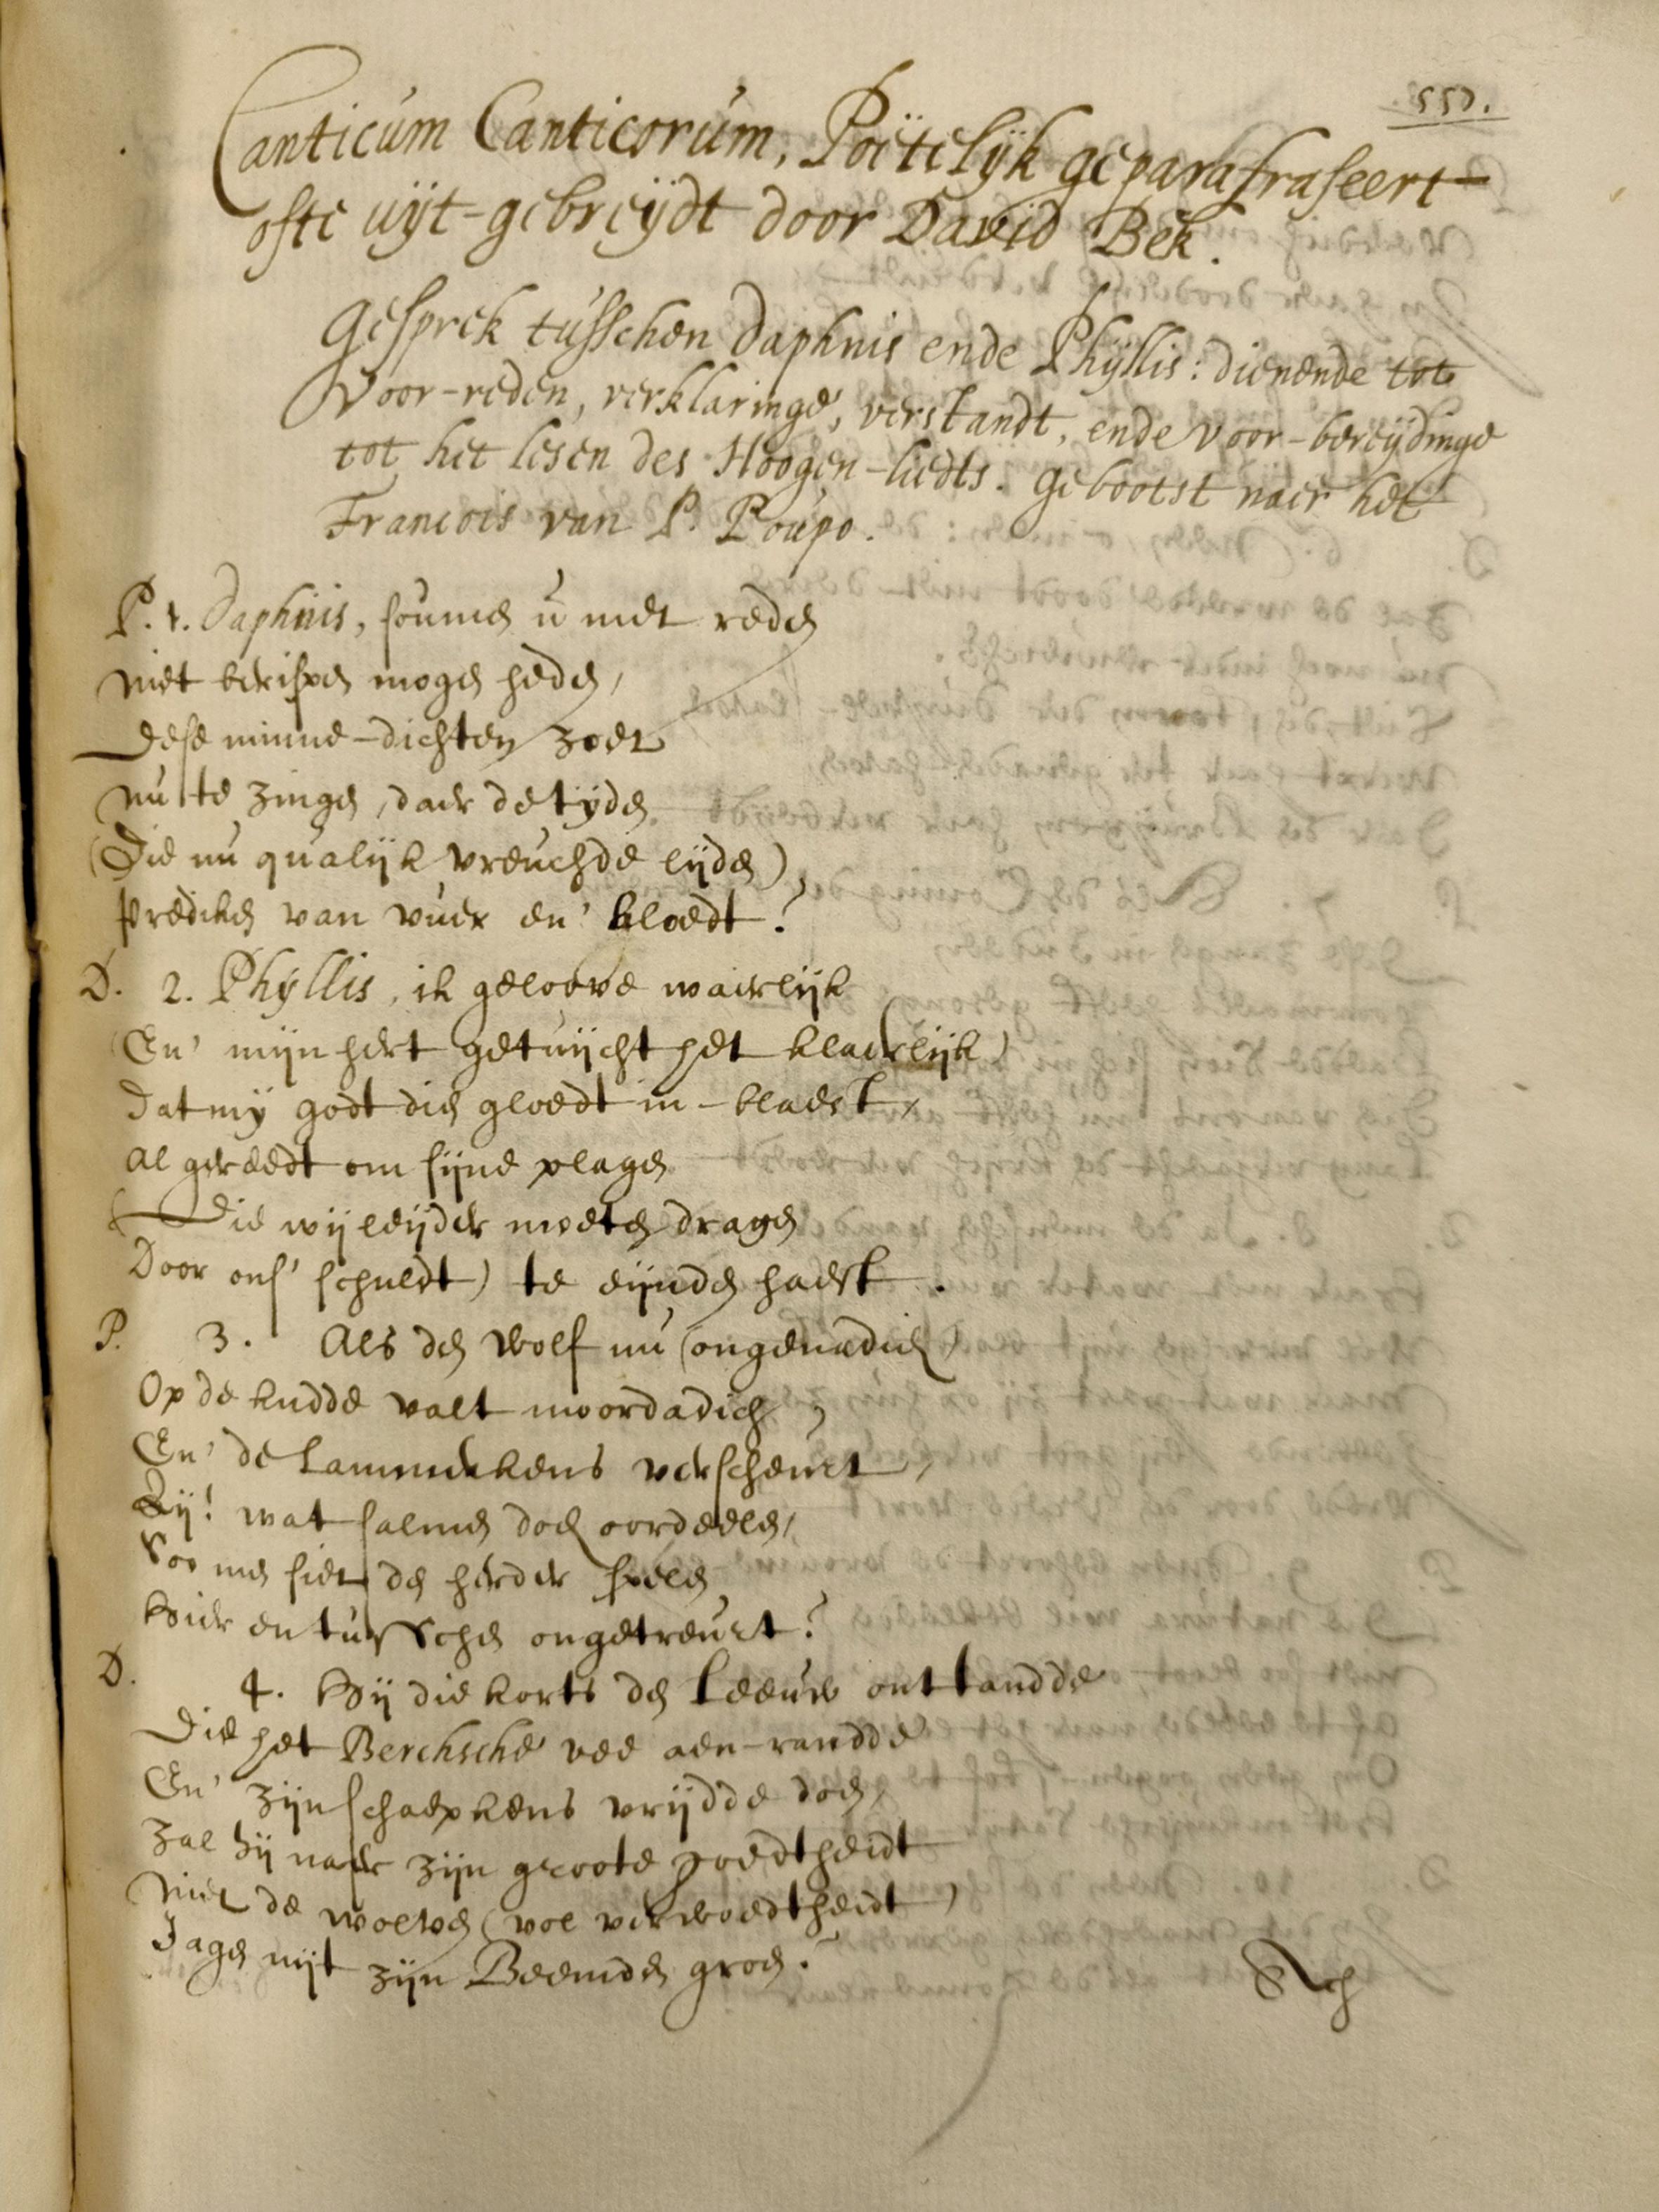 557.
Canticum Canticorum, Poëtelijk geparafraseert
ofte uijt-gebreijdt door David Bek.
Gesprek tusschen Daphnis ende Phyllis: dienende tot
Voor-reden, verklaringe, verstandt, ende voor-bereijdinge
tot het lesen des Hoogen-liedts. Gebootst naer het
Francois van P. Poupo.
P. 1. Daphnis, soumen u met reden
niet berispen mogen heden,
dese minne-dichten zoet
nu te zingen, daer de tijden
(Die nu qualijk vreuchde lijden)
prediken van vuer en' bloedt?
D. 2. Phyllis, ik geloove waerlijk
(En' mijn hert getuijcht het klaerlijk)
dat mij godt dien gloedt in-blaest,
al gereedt om sijne plagen
(Die wij leijder moeten dragen
Door ons' schuldt) te eijnden haest.
P. 3. Als den wolf nu (ongenadich)
Op de kudde valt moordadich,
En' de Lammerkens verscheurt,
Eij! wat salmen doch oordeelen,
Soo men siet den herder spelen
Hier en tusschen ongetreurt?
D. 4. Hij die korts den Leeuw onttandde
Die het Berchsche vee aen-randde
En' zijn schaepkens vrijdde doen,
Zal hij naer zijn groote goedtheidt
Niet de wolven (vol verwoedtheidt)
Jagen uijt zijn Beemden groen?
Ach